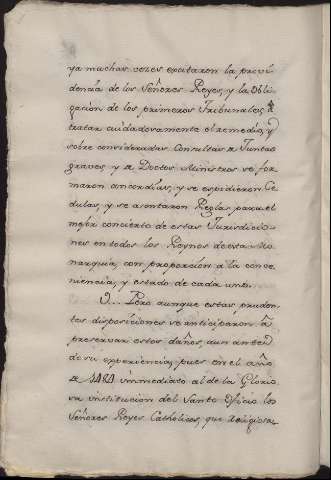 ya muchas vezes excitaron la provi
dencia de los Señores Reyes, y la obli
gacion de los primeros Tribunales à
tratar cuidadosamente el remedio, y
sobre consideradas Consultas de Juntas
graves, y de Doctos Ministros se for
maron concordias, y se expidieron Ce
dulas, y se asentaron Reglas para el
mejor concierto de estas Jurisdiccio
nes en todos los Reynos de esta Mo
narquia, con proporcion à la conve
niencia, y estado de cada uno.
9... Pero aunque estas pruden
tes disposiciones se anticiparon à
preservar estos daños, aun antes
de su experiencia, pues en el año
de 1484 immediato al de la Glorio
sa institucion del Santo Oficio los
Señores Reyes Catholicos, que Religiosa